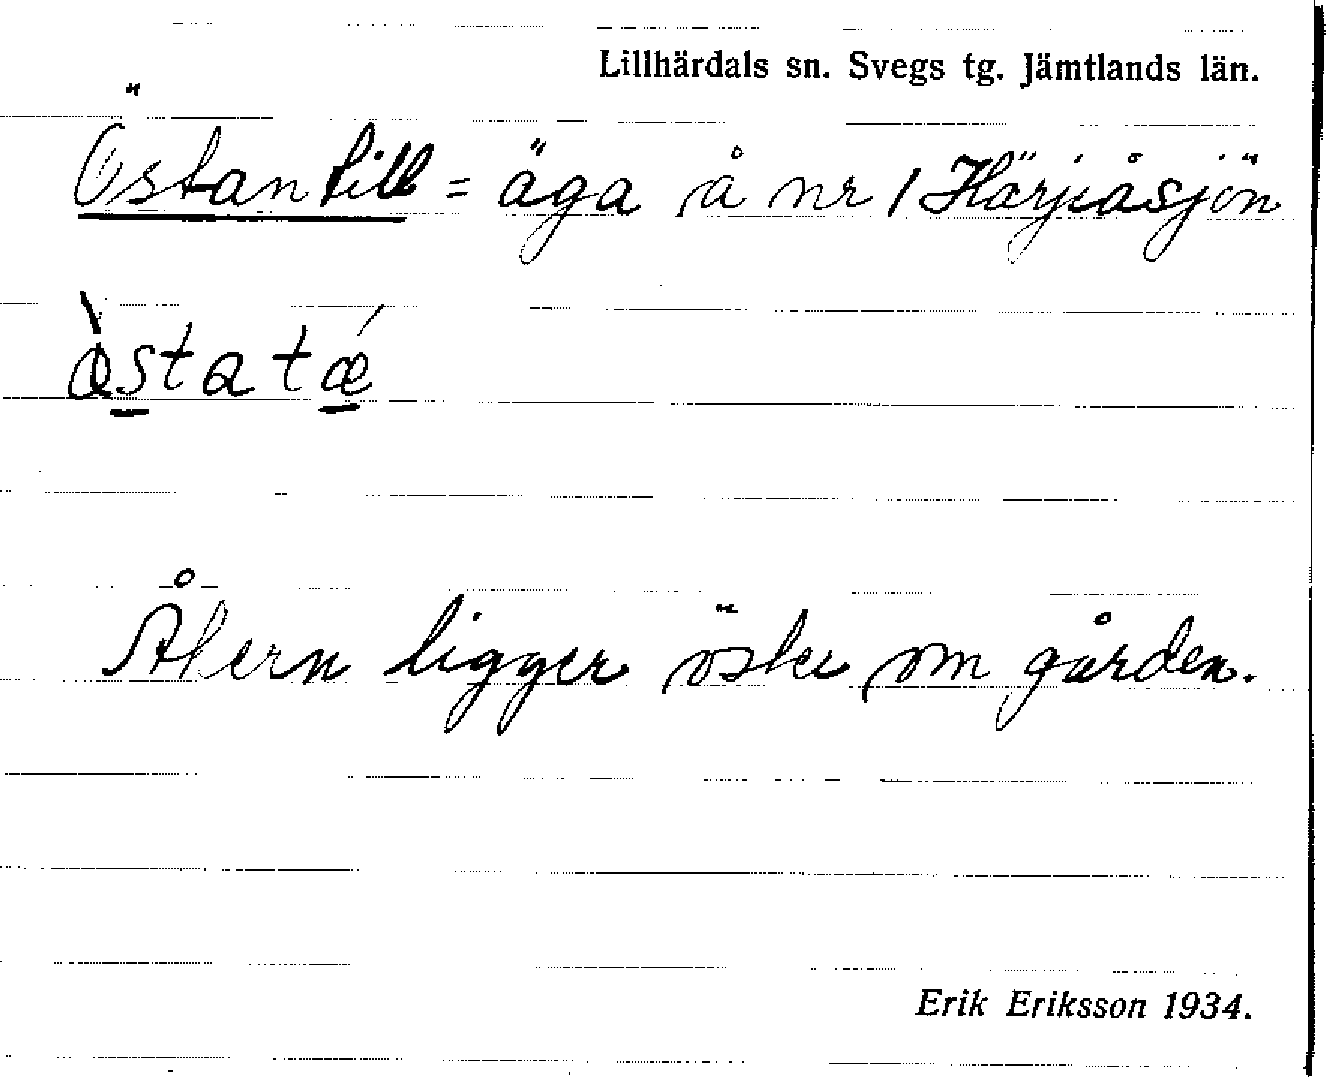 Lillhärdals sn. Svegs tg. Jämtlands län.
Östantill = äga å nr 1 Härjåsjön
östatæ̀
Åkern ligger öster om gården.
Erik Eriksson 1934.